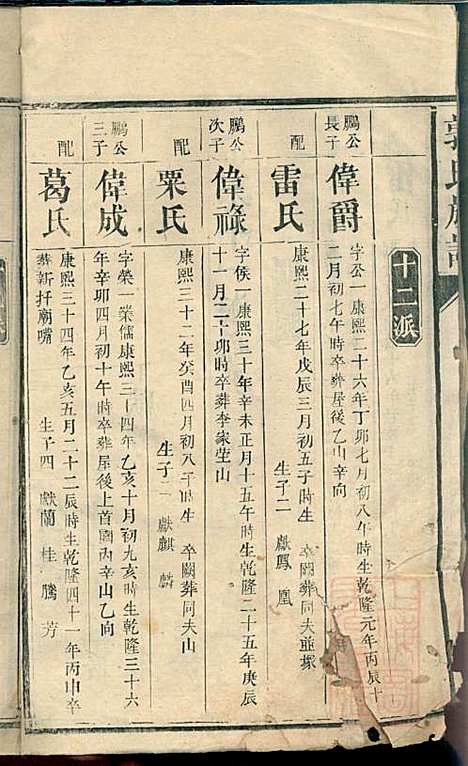 郭氏族譜
十二派
鵬公長子
偉爵
字公一康熙二十六年丁卯七月初八午時生乾隆元年丙辰十
二月初七午時卒葬屋後乙山辛向
配
雷氏
康熙二十七年戊辰三月初五子時生 卒闕葬同夫並塚
生子二 獻鳳 凰
鵬公次子
偉祿
字侯一康熙三十年辛未正月十五午時生乾隆二十五年庚辰
十一月二十卯時卒葬李家堂山
配
粟氏
康熙三十二年癸酉四月初八子時生 卒闕葬同夫山
生子二 獻麒 麟
鵬公三子
偉成
字榮一榮儒康熙三十四年乙亥十月初九亥時生乾隆三十六
年辛卯四月初十午時卒葬屋後上首園內辛山乙向
配
葛氏
康熙三十四年乙亥五月二十二辰時生乾隆四十一年丙申卒
葬新扦廟嘴
生子四 獻蘭 桂 騰 芳